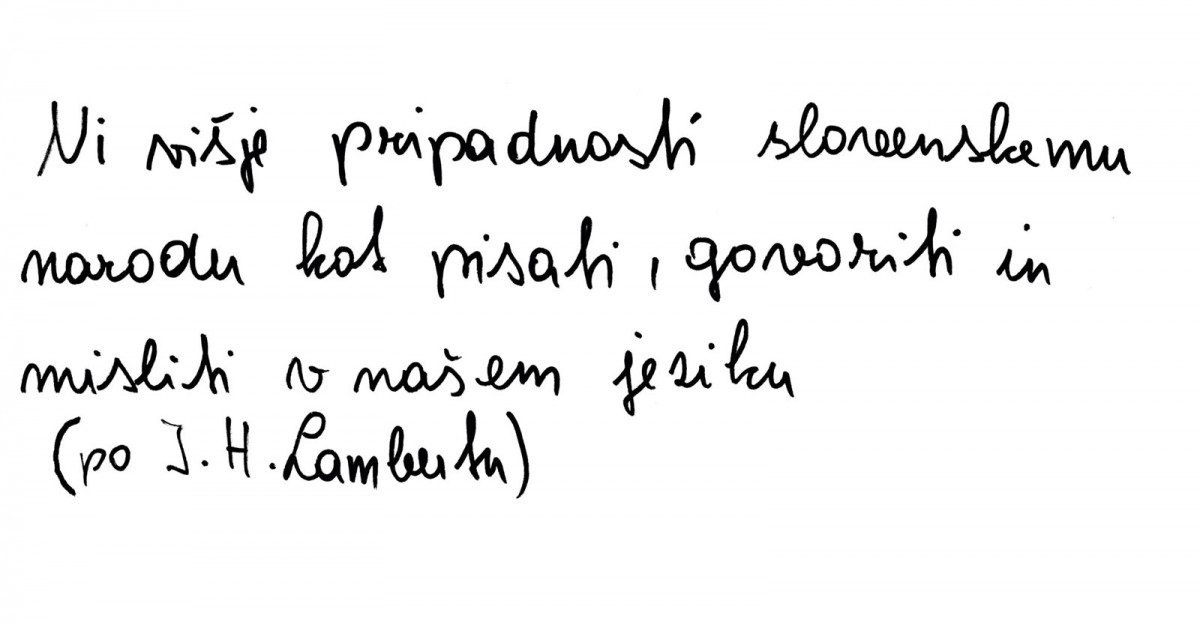 Ni višje pripadnosti slovenskemu
narodu kot pisati, govoriti in
misliti v našem jeziku
(po J. H. Lambertu)